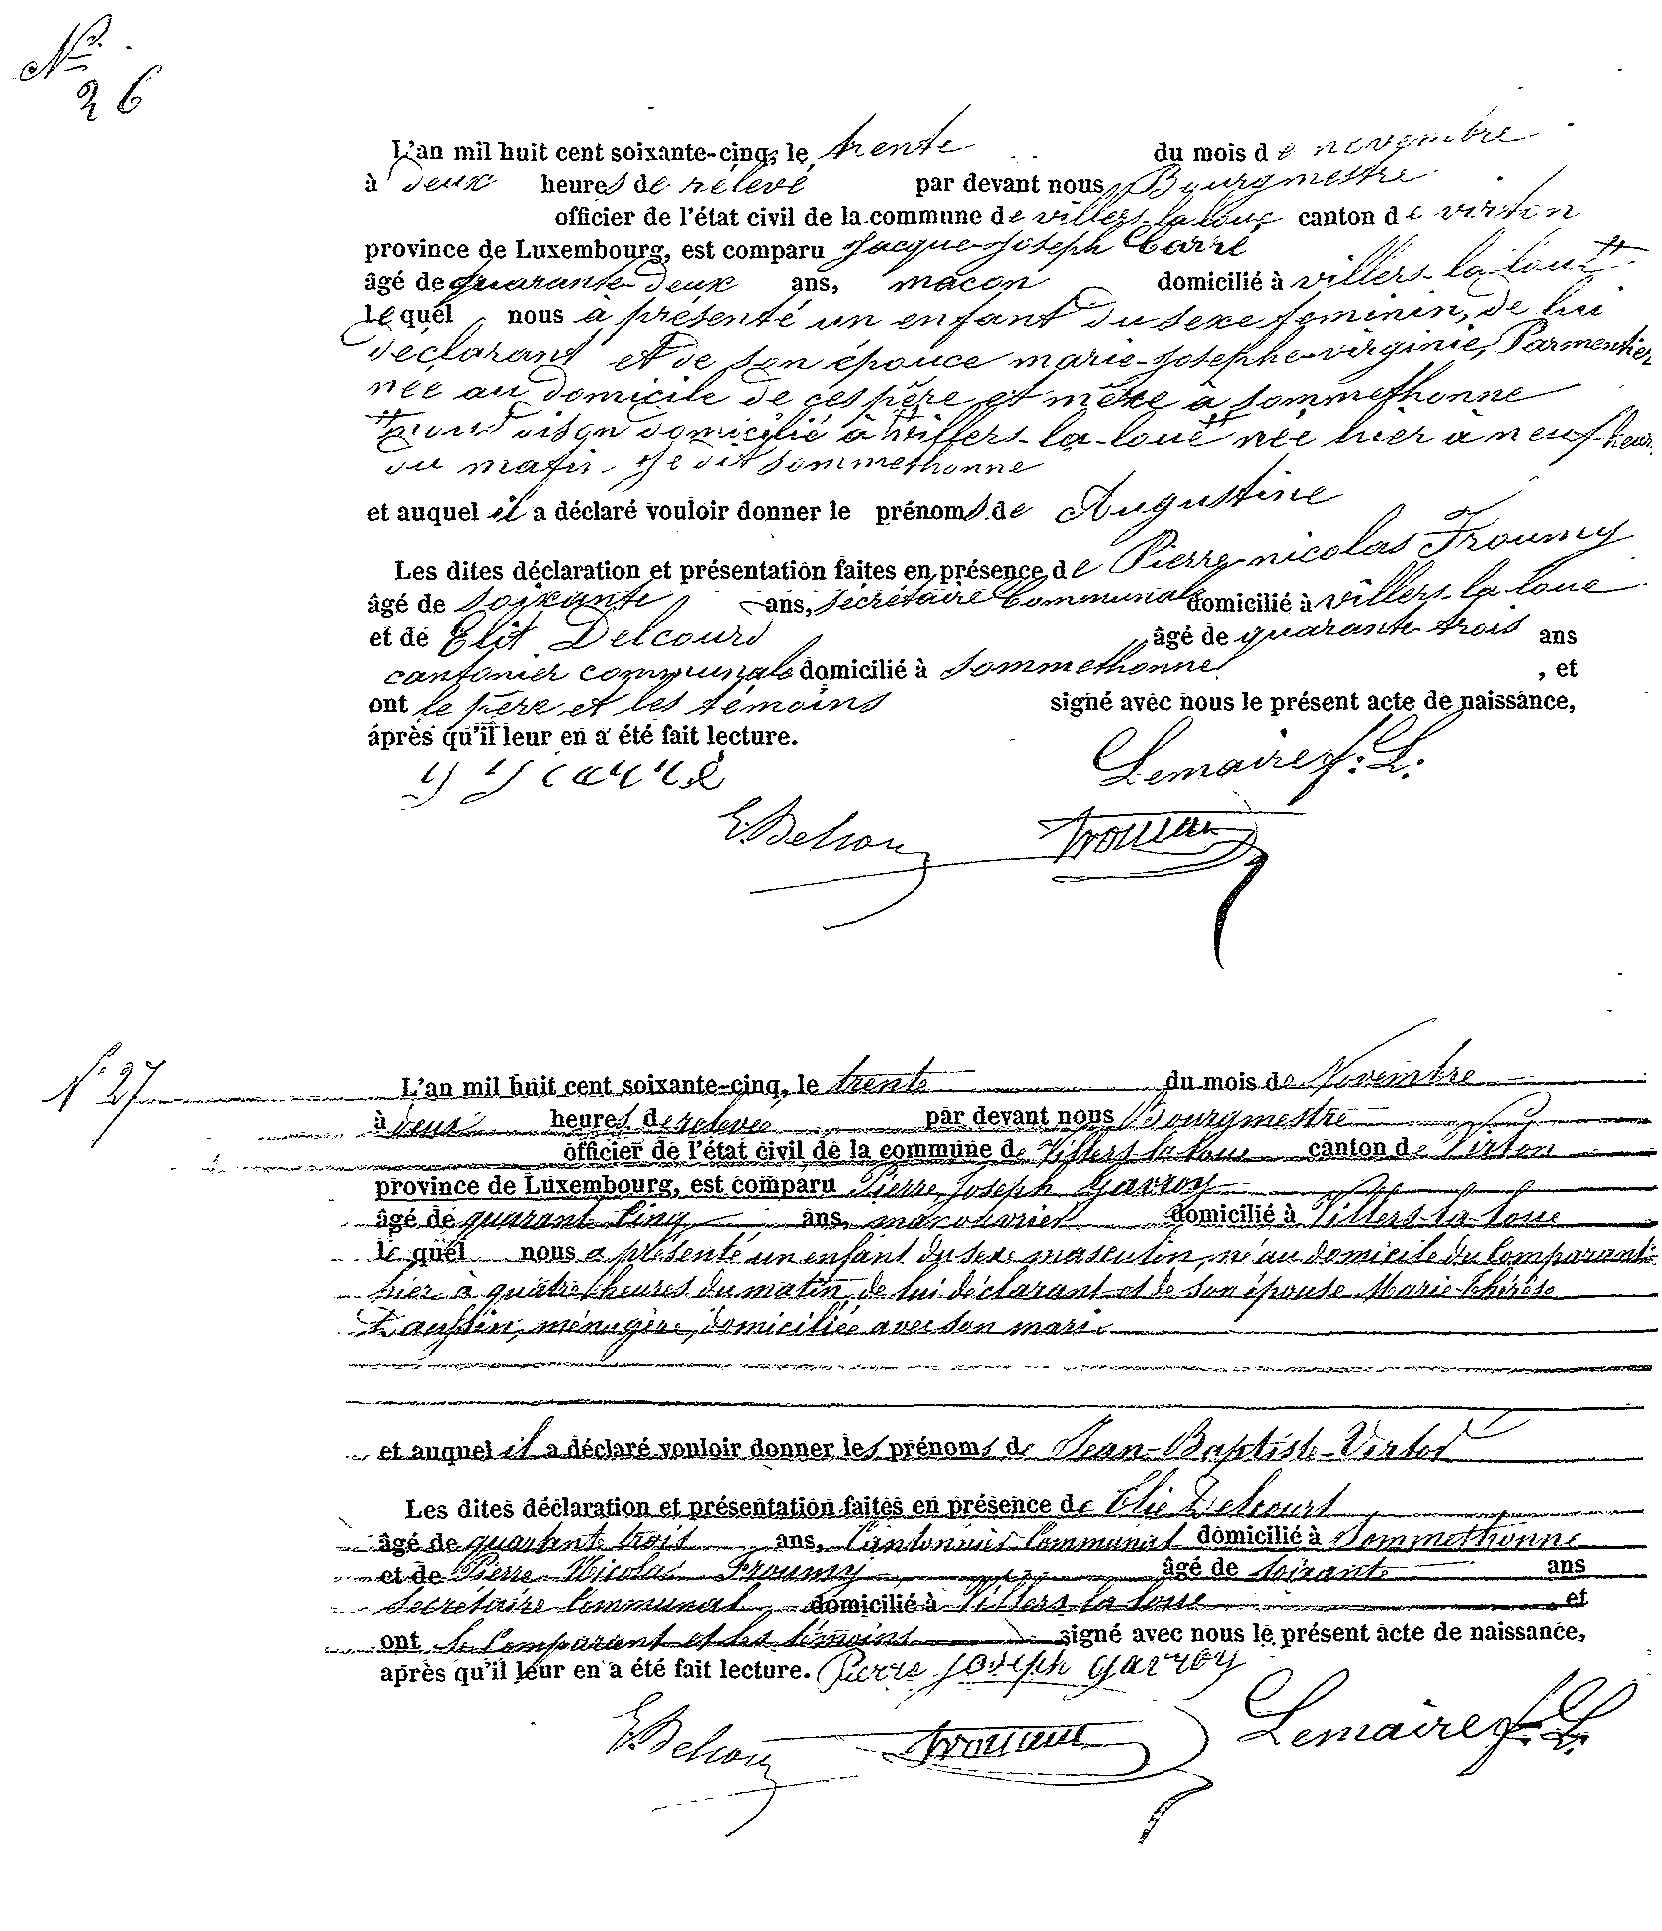 N°
26
L'an mil huit cent soixante-cinq, le trente du mois de novembre
à deux heures de rélevé par devant nous Bourgmestre
officier de l'état civil de la commune de villers-la-loue canton de virton
province de Luxembourg, est comparu Jacque-Joseph Carré
âgé de quarante-deux ans, macon domicilié à villers-la-loue
le quel nous à présenté un enfant du sexe feminin, de lui
déclarant et de son épouce marie-josephe-virginie, Parmentier
née au domicile de ces père et mère à sommethonne
domicilié à villers-la-loue née hier à neuf heur
du matin Je dit sommethonne
et auquel il a déclaré vouloir donner le prénoms de Augustine
Les dites déclaration et présentation faites en présence de Pierre-nicolas Froumy
âgé de soixante ans, sécrétaire Communale domicilié à villers-la-loue
et de Elit Delcourd âgé de quarante-trois ans
cantonier communale domicilié à sommethonne , et
ont le père et les témoins signé avec nous le présent acte de naissance,
après qu'il leur en a été fait lecture.
J J Carré Lemaire f. L.
E. Delcour
N° 27
L'an mil huit cent soixante-cinq, le trente du mois de Novembre
à deux heures de relevé par devant nous Bourgmestre
officier de l'état civil de la commune de Villers-la-loue canton de Virton
province de Luxembourg, est comparu Pierre Joseph Gavroy
âgé de quarante Cinq ans, manouvrier domicilié à Villers-la-loue
le quel nous a présenté un enfant du sexe masculin, né au domicile du Comparant
hier à quatre heures du matin, de lui déclarant et de son épouse Marie-Thérèse
ménagère, domiciliée avec son mari
et auquel il a déclaré vouloir donner les prénoms de Jean-Baptiste-Victor
Les dites déclaration et présentation faites en présence de Elie Delcourt
âgé de quarante trois ans, Cantonnier Communal domicilié à Sommethonne
et de Pierre Nicolas Froumy âgé de soixante ans
Secrétaire Communal domicilié à Villers la loue , et
ont le Comparant et les témoins signé avec nous le présent acte de naissance,
après qu'il leur en a été fait lecture. Pierre Joseph gavroy
E. Delcour Lemaire f. L.